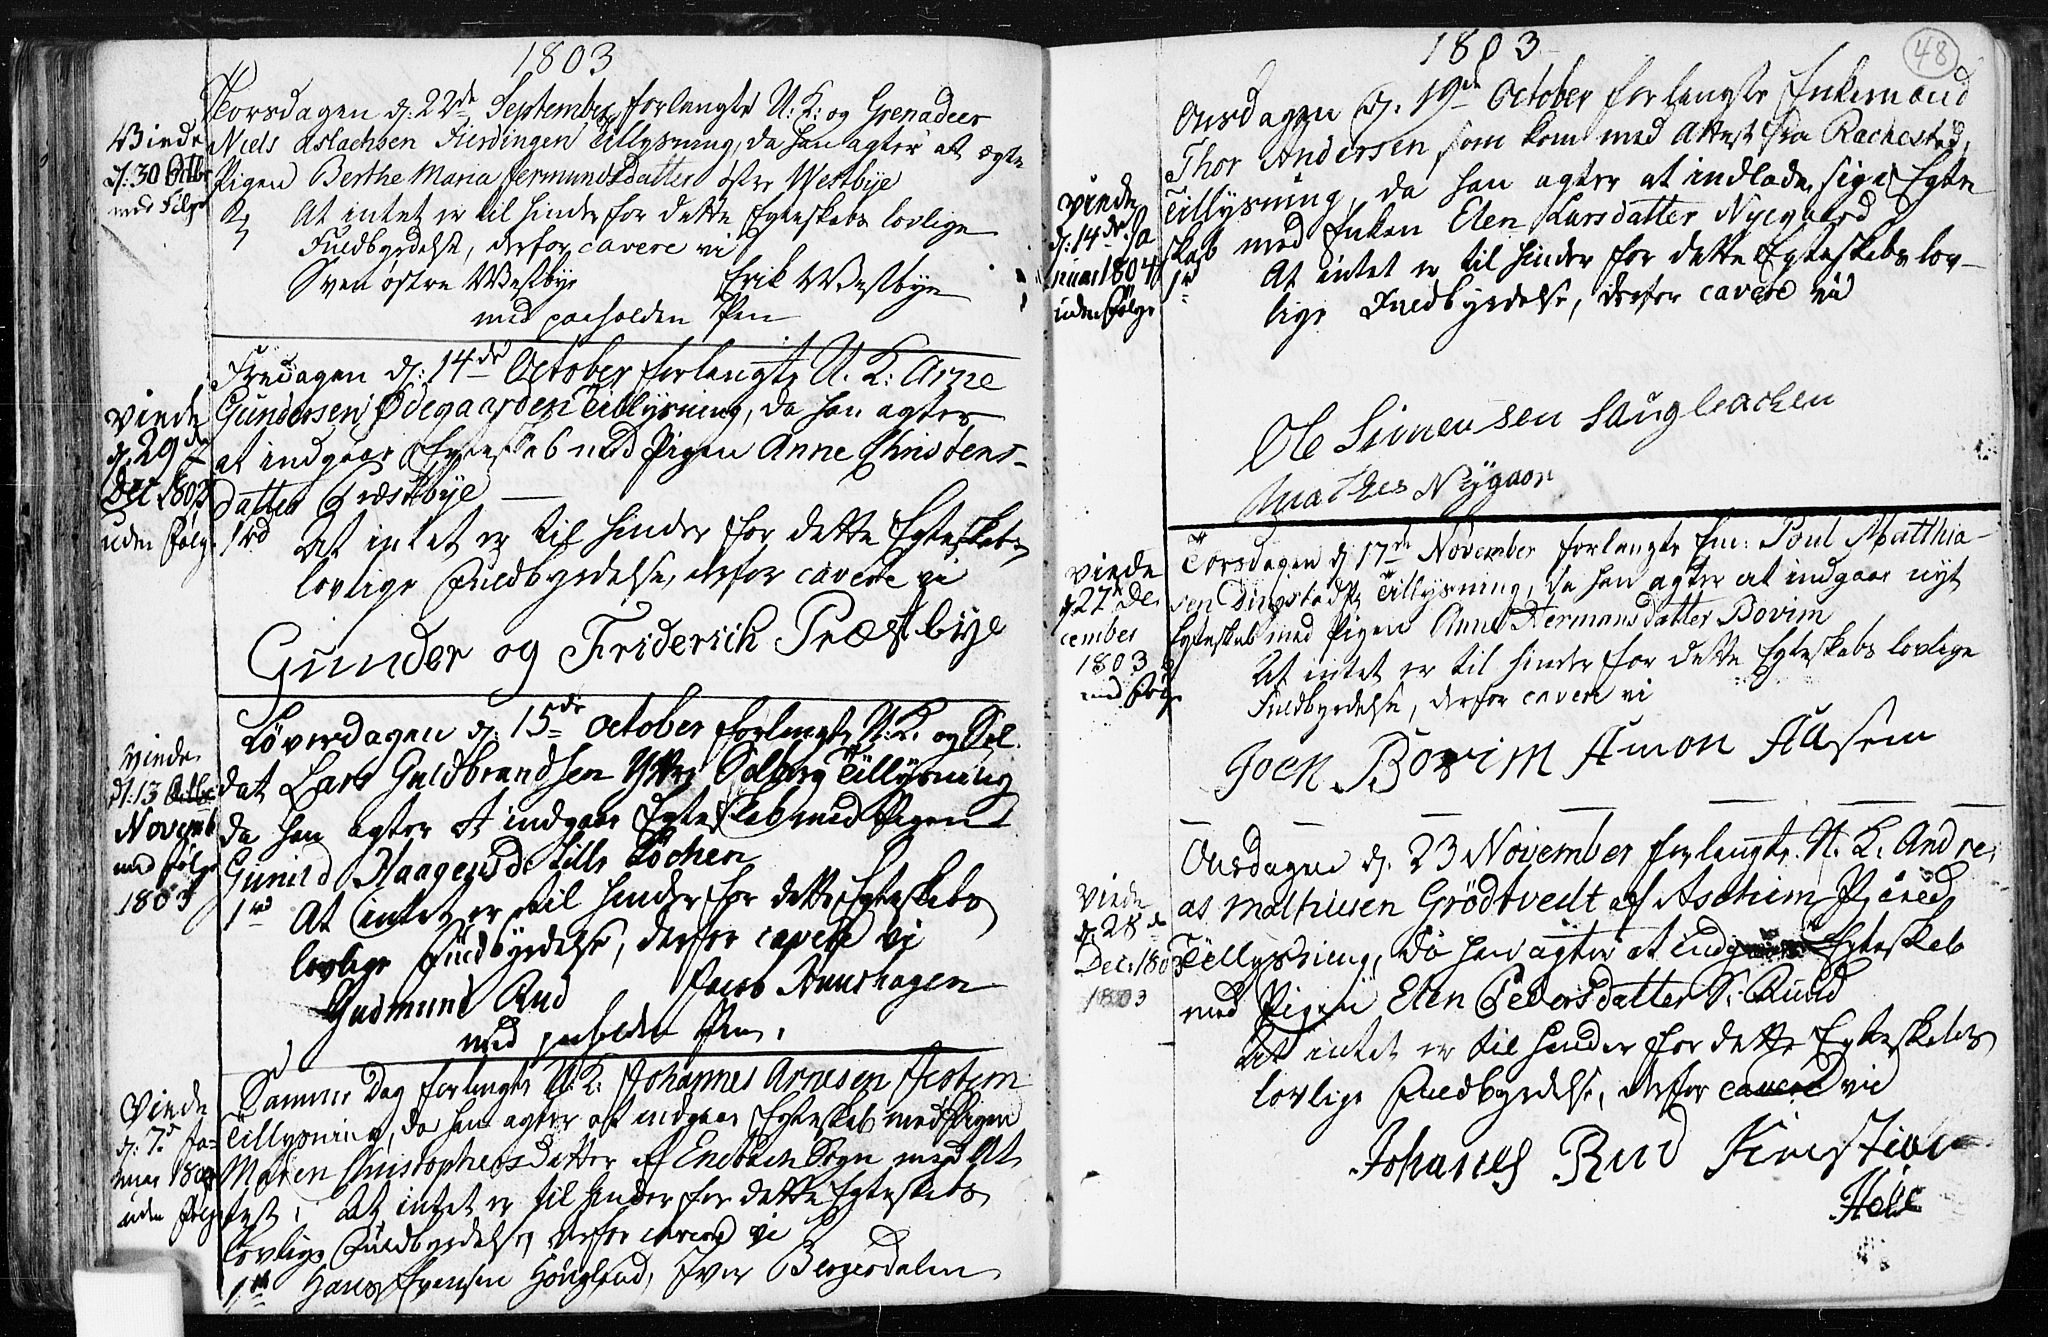 1803
Torsdagen d: 22de September forlangte U: K: og Grenadeer
Niels Aslachsen Fierdingen Tillysning, da han agter at ægte
Pigen Berthe Maria Jermundsdatter østre Westbye
At intet er til hinder for dette Egteskabs lovlige
Fuldbyrdelse, derfor cavere vi
Sven østre Westbye Erik Westbye
med paaholden Pen
Viede
d: 30 Octbr
med Følge
Fredagen d: 14de October forlangte U. K: Arne
Gundersen Ødegaarden Tillysning, da han agter
at indgaae Egteskab med Pigen Anne Christens-
datter Præstbye
1rd At intet er til hinder for dette Egteskabs
lovlige Fuldbyrdelse, derfor cavere vi
Gunder og Friderich Præstbye
Viede
d. 29de
Dec. 1803
uden Følge
Løverdagen d: 15de October forlangte U. K. og Sol
dat Lars Guldbrandsen Ytre Solberg Tillysning
da han agter at indgaae Egteskab med Pigen
Gunild Haagensd. lille Løchen
1rd At intet er til hinder for dette Egteskabs
lovlige Fuldbyrdelse, derfor cavere vi
Gudmund Rud Jacob
med paaholden Pen.
Viede
d: 13
Novemb
med følge
1803
Samme Dag forlangte U. K: Johannes Arnesen
Tillysning, da han agter at indgaae Egteskab med Pigen
Maren Christophersdatter af Enebach Sogn med At
test. At intet er til hinder for dette Egteskabs
lovlige Fuldbyrdelse, derfor cavere vi
Hans Evensen Iver Bergerdalen
Viede
d: 7de Ja-
nuar 1804
uden følge
1803
48
Onsdagen d: 19de October forlangte Enkemand
Thor Andersen, som kom med Attest fra Rachestad,
Tillysning, da han agter at indlade sig i Egte
skab med Enken Elen Larsdatter Nyegaard
1rd At intet er til hinder for dette Egteskabs lov-
lige Fuldbyrdelse, derfor cavere vi
Ole Simensen Haugleachen
Mathes Nygaar
Viede
d: 14de Ja
nuar 1804
uden følge
Torsdagen d 17de November forlangte Em: Poul Matthia-
sen Dingstad Tillysning, da han agter at indgaae nyt
Egteskab med Pigen Anne Hermansdatter Bovim
At intet er til hinder for dette Egteskabs lovlige
Fuldbyrdelse, derfor cavere vi
Joen Bovim Amon Aasem
Viede
d. 27 De
cember
1803
med følge
Onsdagen d. 23 November forlangte U. K. Andre
as Mathiesen Grödtvedt af Aschim Præ
Tillysning, da han agter at indgaae Egteskab
med Pigen Elen Pedersdatter S: Ruud
At intet er til hinder for dette Egteskabs
lovlige Fuldbyrdelse, derfor cavere vi
Johanes Rud
Viede
d. 28de
Dec: 1803
1803